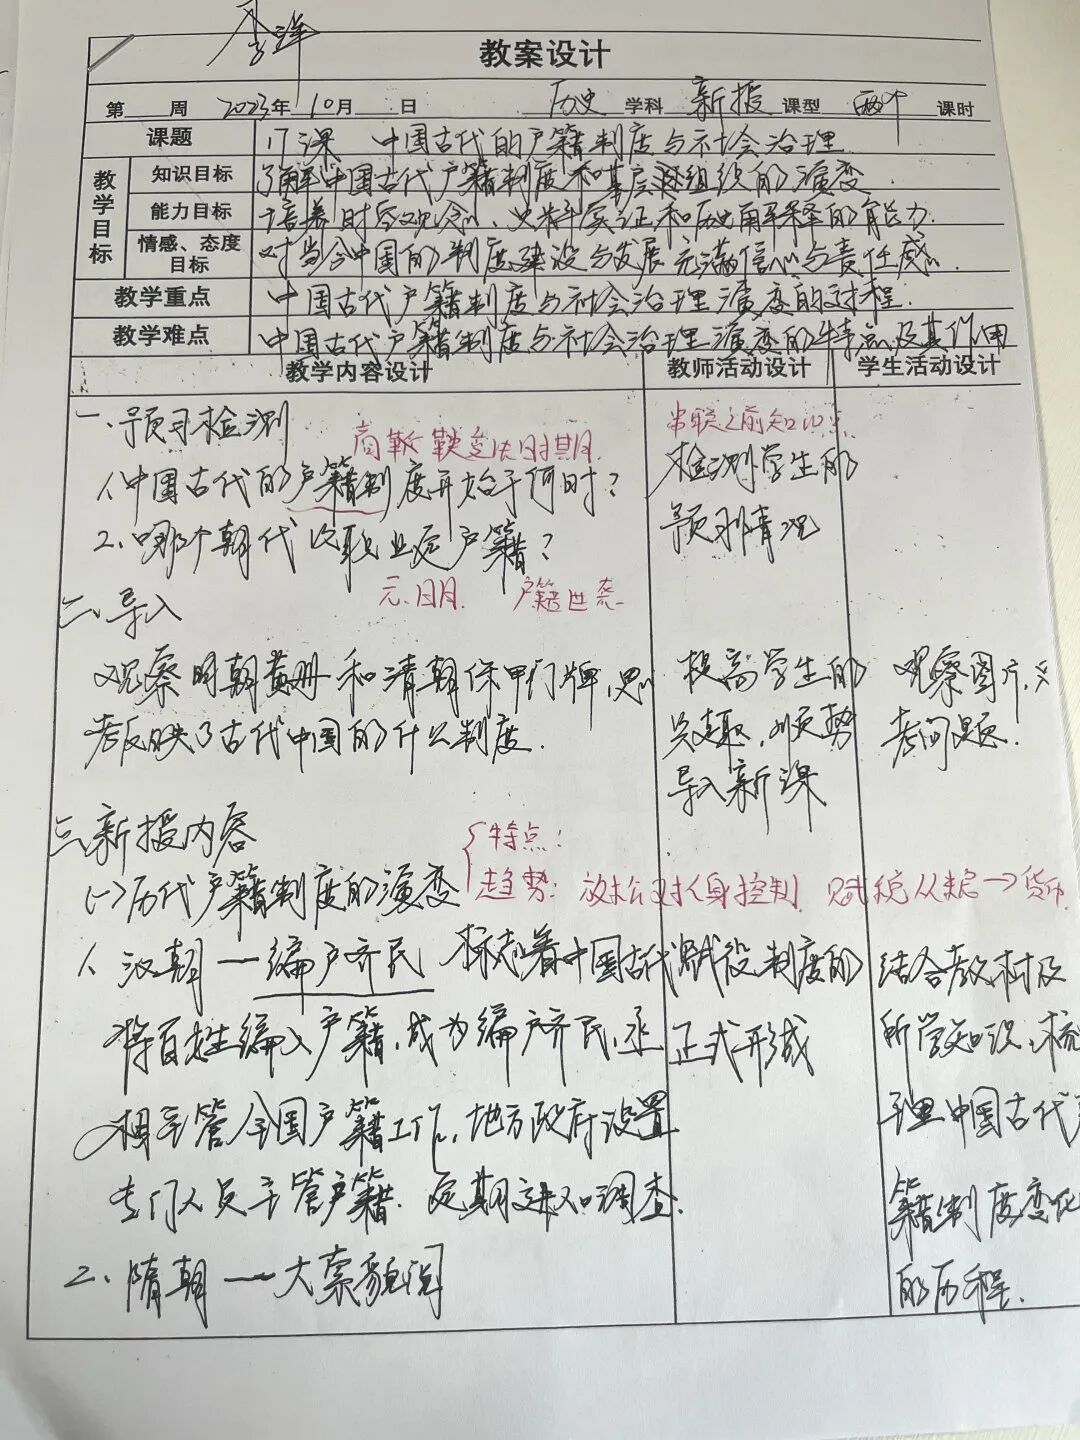 李洋
教案设计
第 周 2023年10月 日 历史 学科 新授 课型 两个 课时
课题 17课 中国古代的户籍制度与社会治理
教学目标
知识目标 了解中国古代户籍制度和基层组织的演变.
能力目标 培养时空观念、史料实证和历史解释的能力.
情感、态度目标 对当今中国的制度建设与发展充满信心与责任感.
教学重点 中国古代户籍制度与社会治理演变的过程.
教学难点 中国古代户籍制度与社会治理演变的特点及其作用
教学内容设计 教师活动设计 学生活动设计
一.预习检测
商鞅变法时期.
1.中国古代的户籍制度开始于何时?
2.哪个朝代以职业定户籍?
元.明. 户籍世袭
串联之前知识点.
检测学生的
预习情况
二、导入
观察明朝黄册和清朝保甲门牌,思
考反映了古代中国的什么制度.
提高学生的
兴趣.顺势
导入新课
观察图片,思
考问题.
三.新授内容
特点:
(一)历代户籍制度的演变
趋势: 放松对人身控制. 赋税从 → 货币
1、汉朝——编户齐民 标志着中国古代赋役制度的
正式形成
将百姓编入户籍.成为编户齐民,丞
相主管全国户籍工作,地方政府设置
专门人员主管户籍.定期进行人口调查.
2、隋朝——大索貌阅
结合教材及
所学知识,梳
理中国古代户
籍制度变化
的历程.